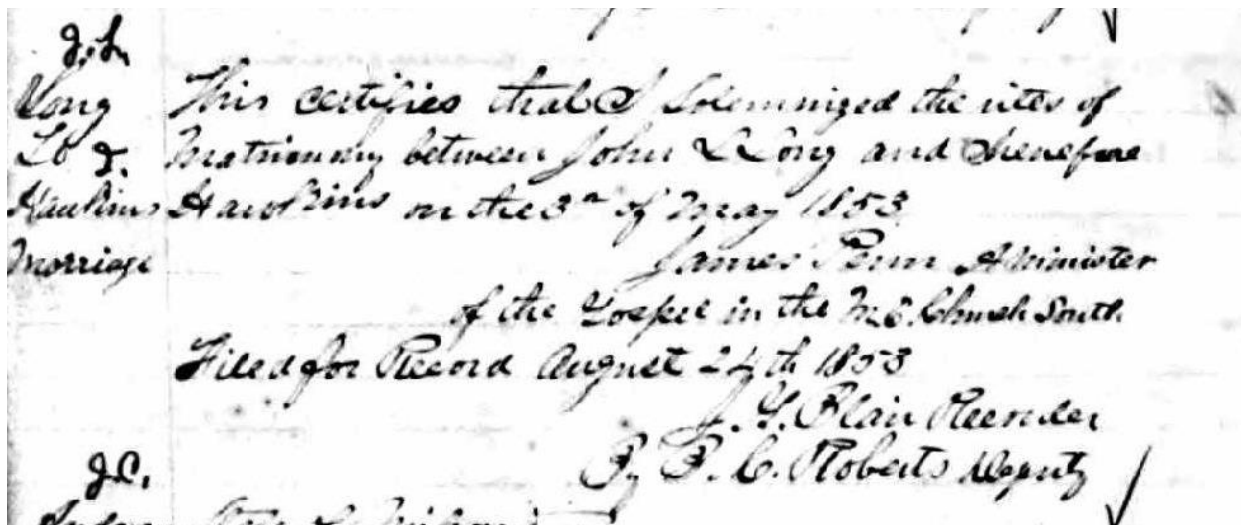 J. L.
Long
To J.
Hawkins
Marriage
This certifies that I Solemnized the rites of
Matrimony between John L Long and
Hawkins on the 3rd of May 1853
James Penn A Minister
of the Gospel in the M.E. Church South
Filed for Record August 24th 1853
Blair Recorder
By P. C. Roberts Deputy
J.C.